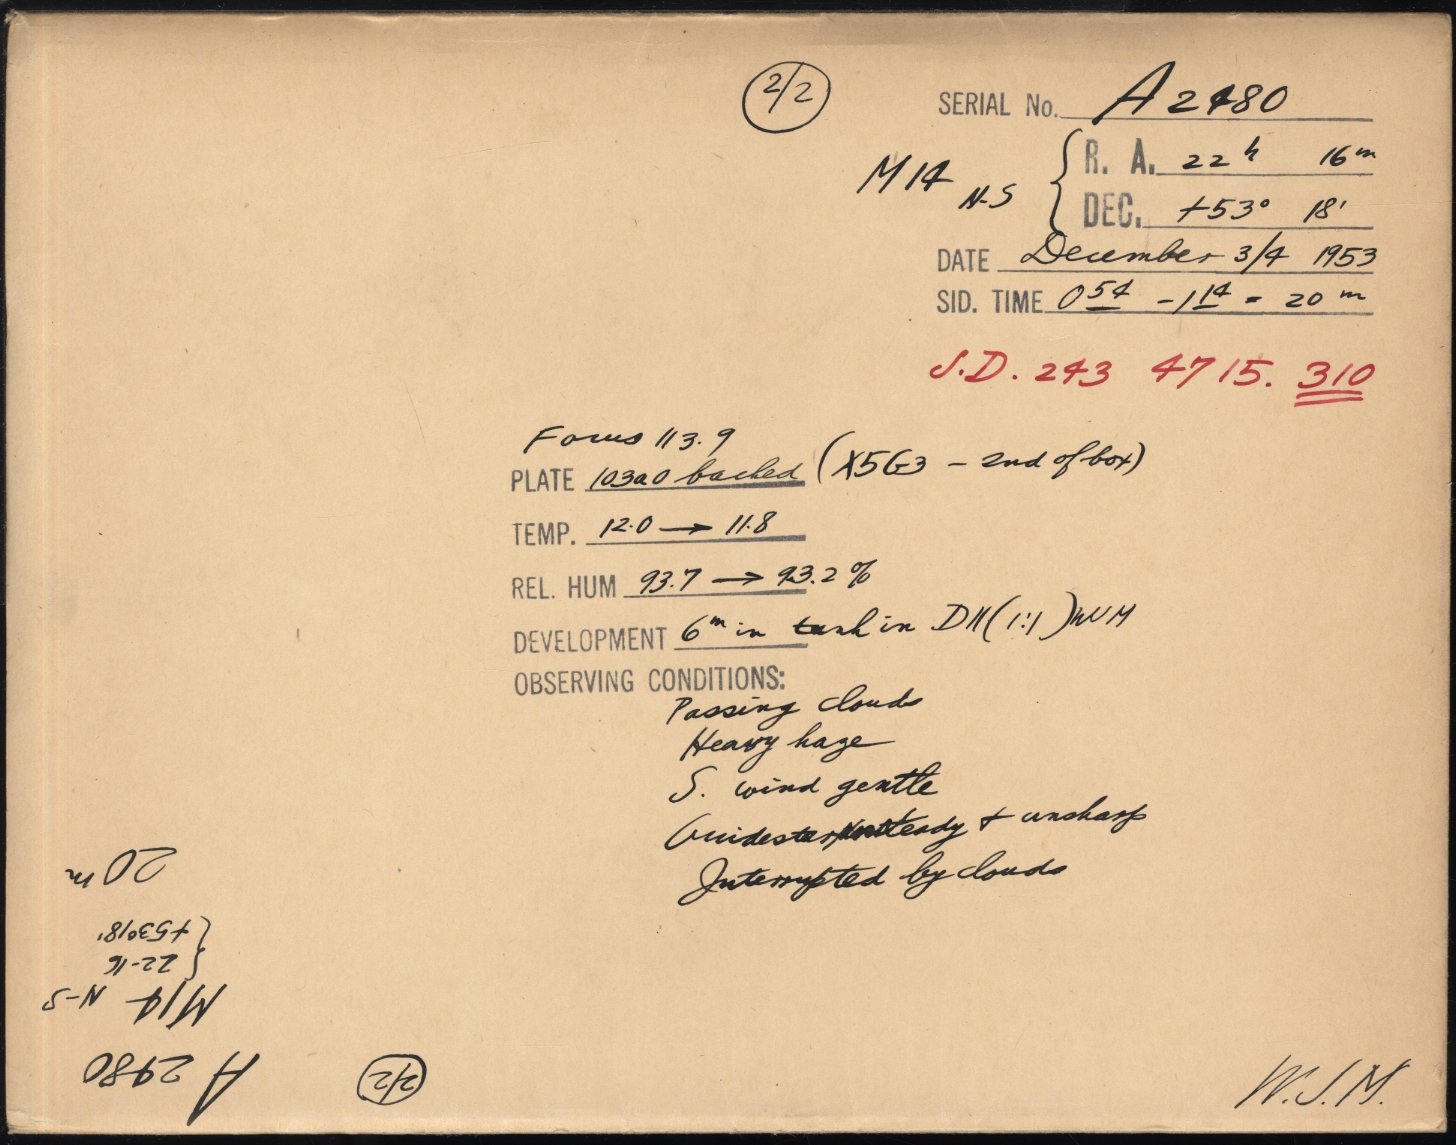 2/2
SERIAL No. A2480
M14 N-S
R. A. 22h 16m
DEC. +53° 18'
DATE December 3/4 1953
SID. TIME 0 54 - 1 14 = 20 m
J.D. 243 4715. 310
Focus 113.9
PLATE 103a0 backed (X5G3 - 2nd of box)
TEMP. 12.0 → 11.8
REL. HUM 93.7 → 93.2%
DEVELOPMENT 6m in tank in D11 (1:1)
OBSERVING CONDITIONS:
Passing clouds
Heavy haze
S. wind gentle
Guidestar unsteady & unsharp
Interrupted by clouds
W.J.M.
2/2
A 2480
M14 N-S
22-16
+53°18'
20 m